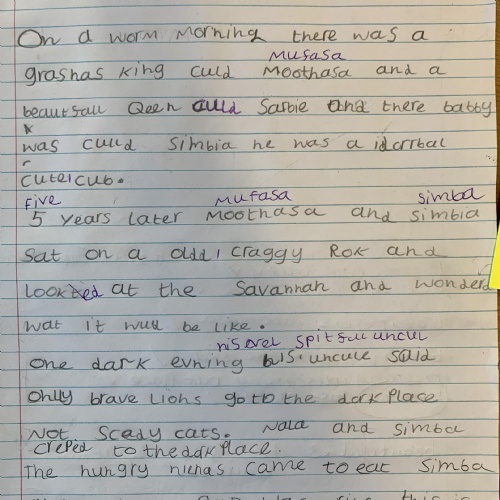 On a worm morning there was a
mufasa
grashas king culd Moothasa and a
beautfall Qeen culld Sarbie and there babby
was culld Simbia he was a idorrbal
cute cub.
five mufasa simba
5 years later Moothasa and Simbia
Sat on a old, craggy Rok and
looked at the Savannah and wonderd
wat it wud be like.
his evel spitfull uncul
One dark evning his uncule said
Only brave Lions go to the dark place
Not Scedy cats. Nala and Simba
creped to the dark place.
The hungry hienas came to eat Simba